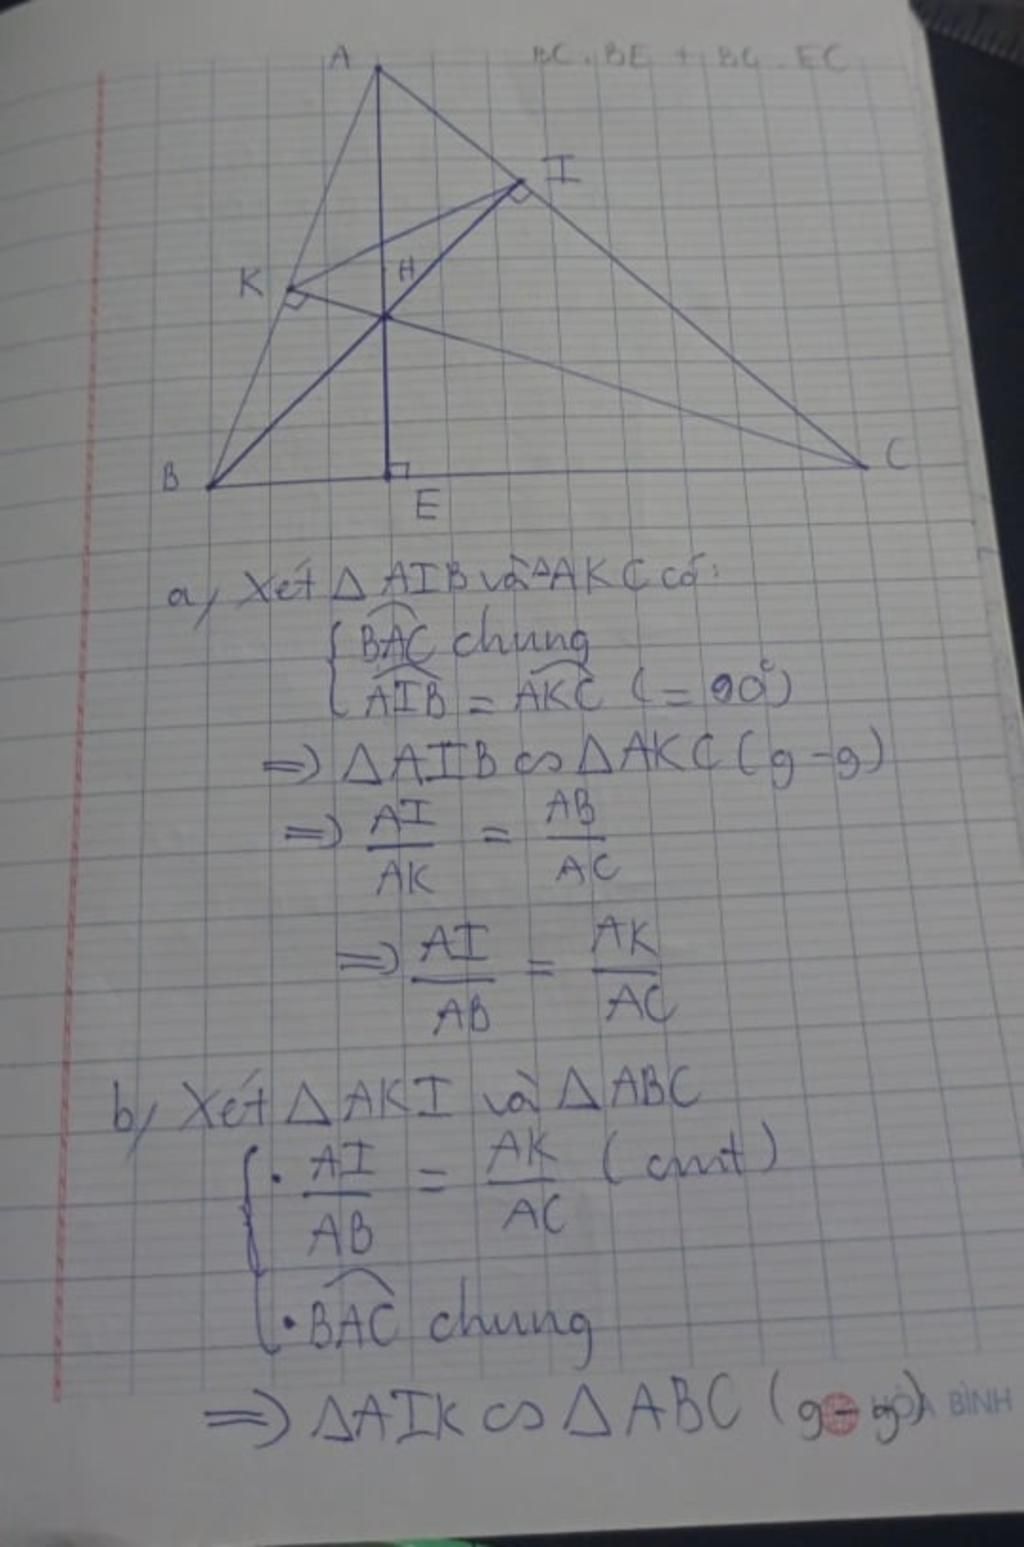 A
BC . BE + BC . EC
I
K
H
B
C
E
a, Xét Δ AIB và ΔAKC có:
{ BAC chung
AIB = AKC ( = 90°)
=> Δ AIB ∽ Δ AKC ( g - g )
=> AI/AK = AB/AC
=> AI/AB = AK/AC
b, Xét Δ AKI và Δ ABC
{ . AI/AB = AK/AC ( cmt )
. BAC chung
=> ΔAIK ∽ Δ ABC ( g - g )
HÒA BÌNH